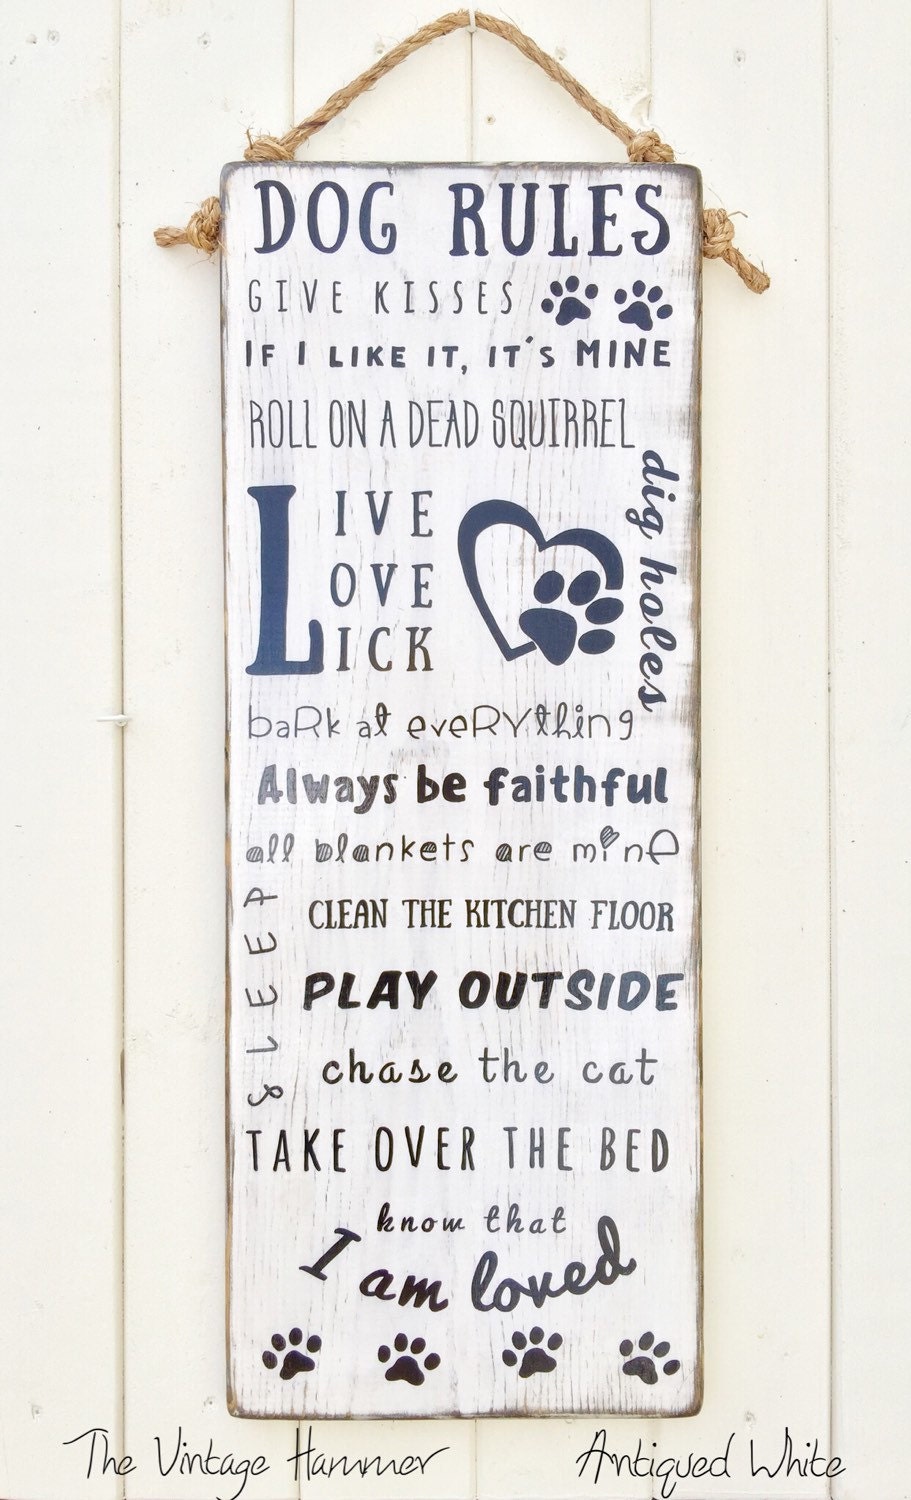 DOG RULES
GIVE KISSES
IF I LIKE IT, IT'S MINE
ROLL ON A DEAD SQUIRREL
dig holes
LIVE
LOVE
LICK
baRk at eveRYthing
Always be faithful
all blankets are mine
SLEEP
CLEAN THE KITCHEN FLOOR
PLAY OUTSIDE
chase the cat
TAKE OVER THE BED
know that
I am loved
The Vintage Hammer
Antiqued White